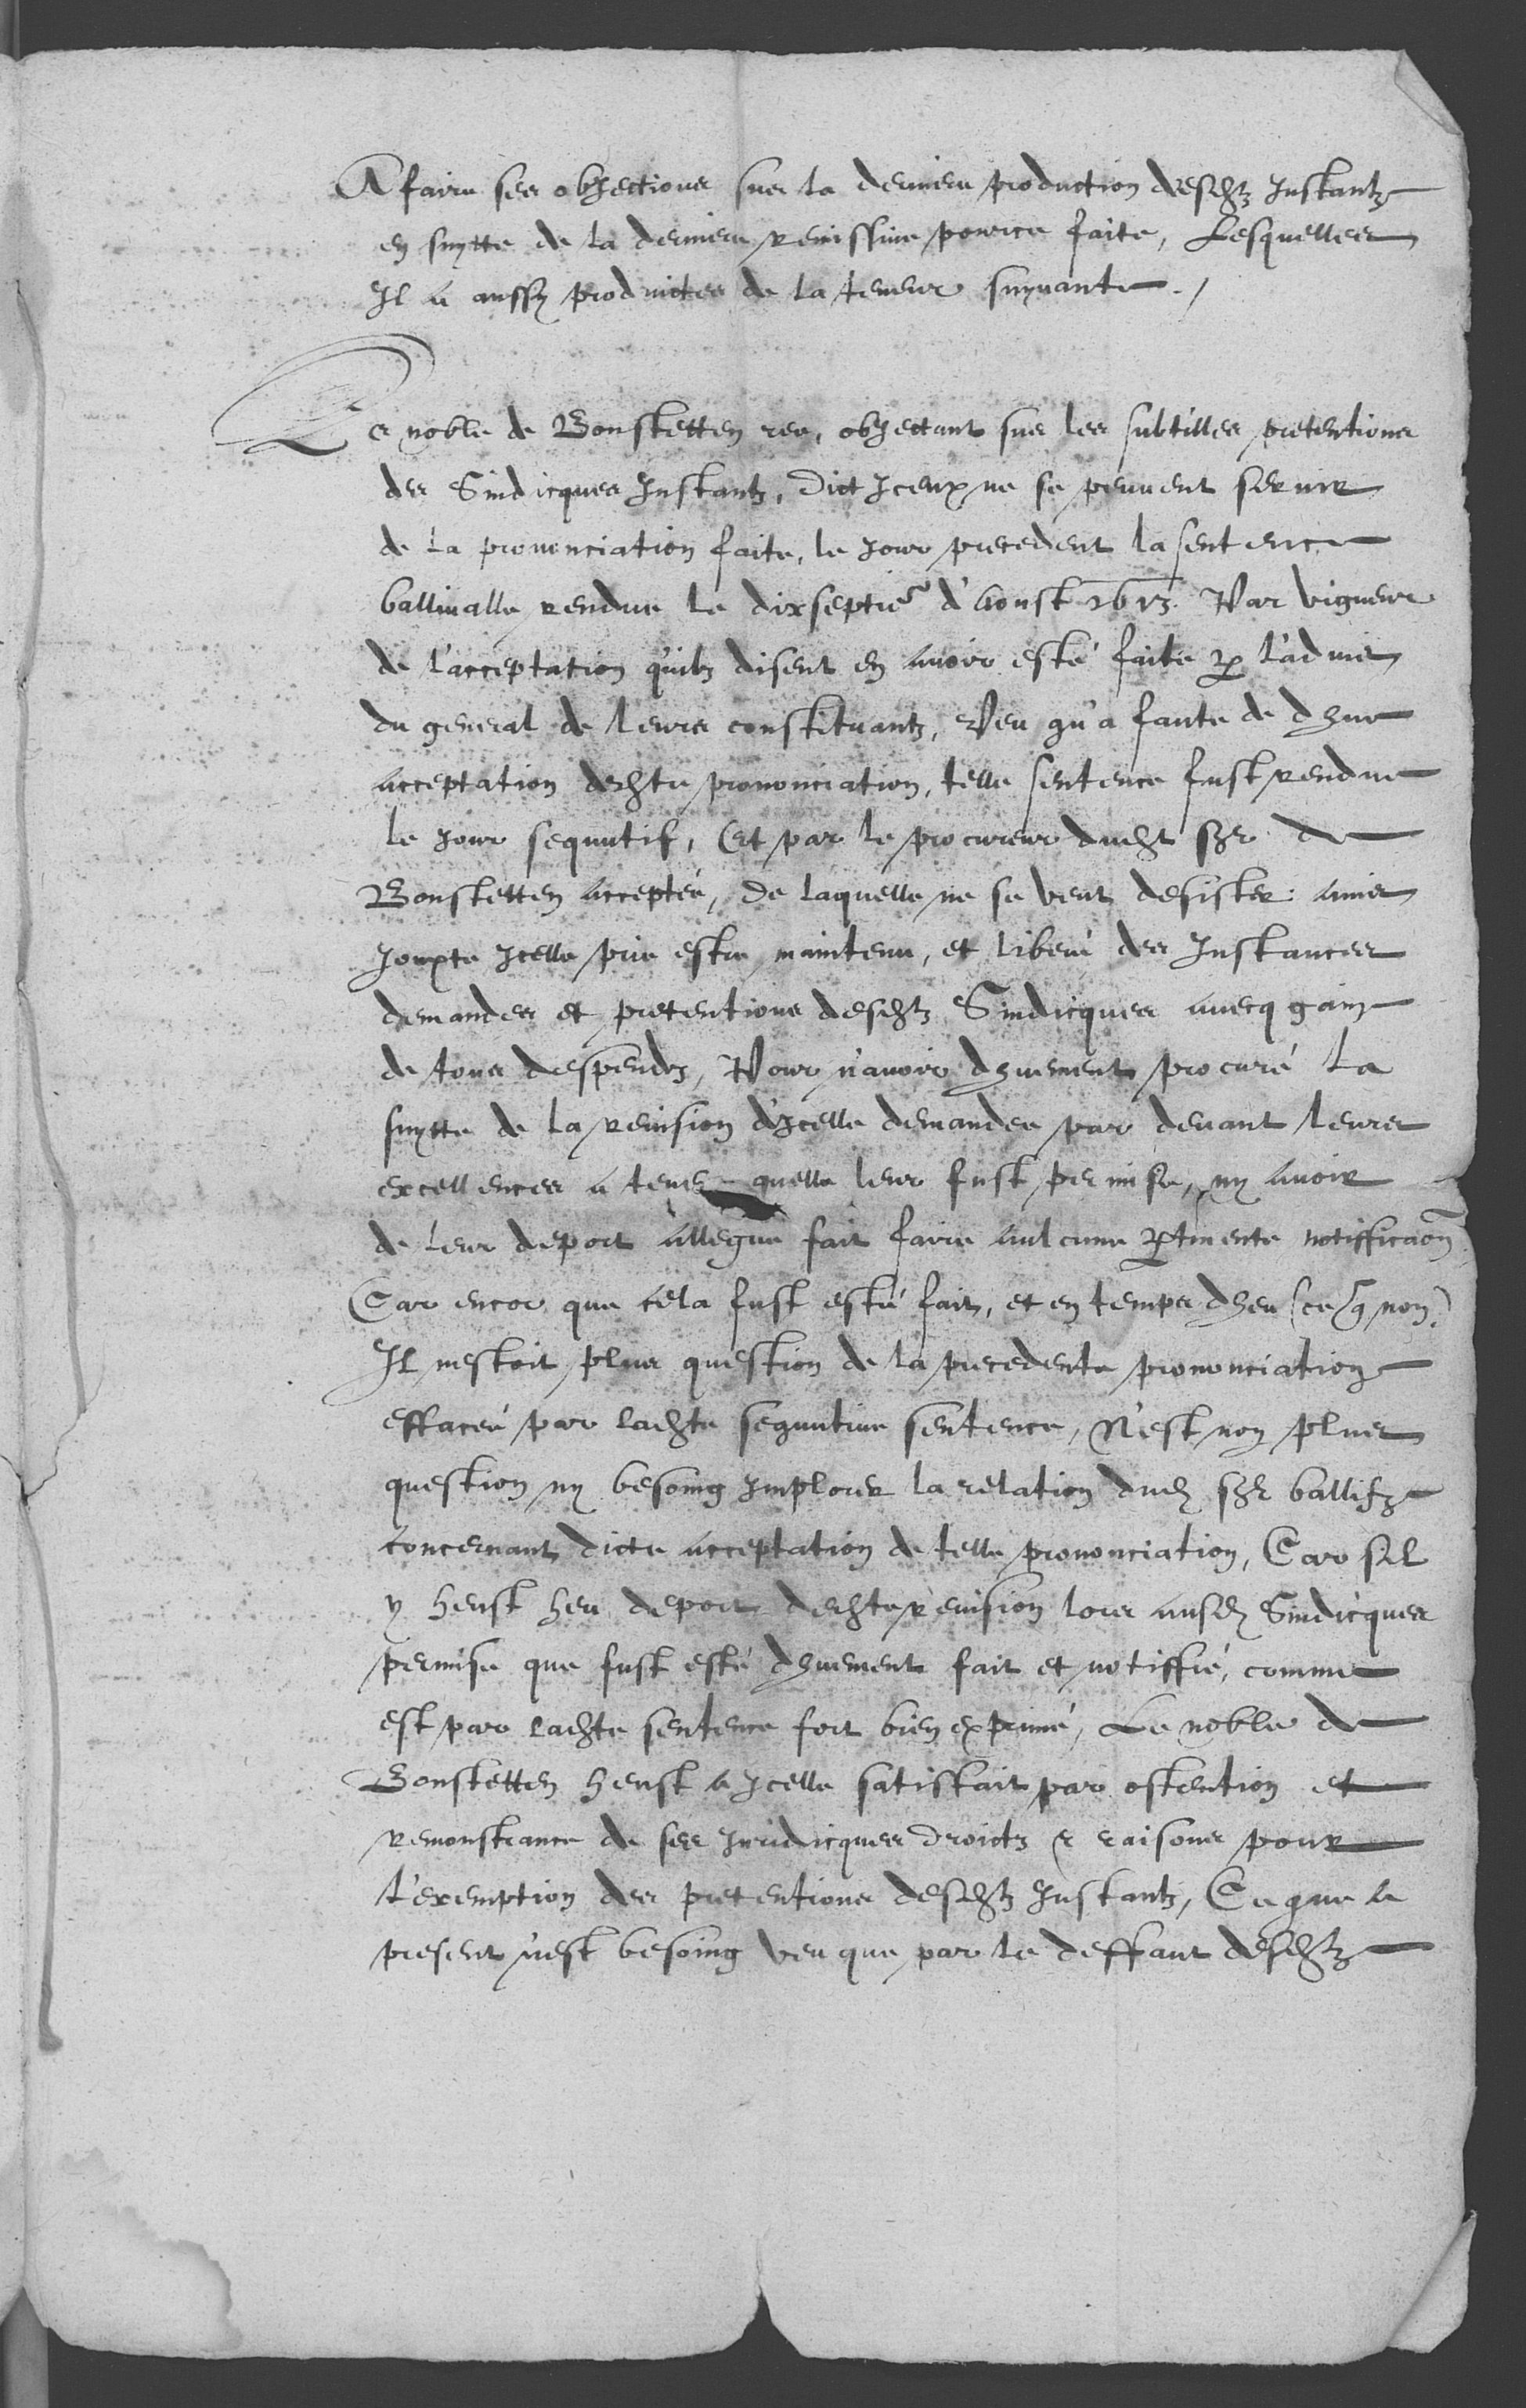 A faire ses objections sur la derniere production desdtz Instantz
en suytte de la derniere remissive pource faite, Lesquelles
Il a aussy produictes de la teneur suyvante./
Le noble de Bonstetten ree, objectant sur les subtilles pretentions
des Sindicques Instantz, Dict Iceux ne se peuvent servir
de la prononciation faite, le Jour precedent la sentence
ballivalle rendue le dixseptie d'Aoust 1613. Par vigueur
de l'acceptation qu'ilz disent en avoir esté faite p l'advis
du general de leurs constituantz, Veu qu'a faute de dhue
acceptation dedte prononciation, telle sentence fust rendue
le Jour sequutif, Et par le procureur dudt Sgr de
Bonstetten acceptée, De laquelle ne se veut desister ains
Jouxte Icelle prie estre maintenu, et liberé des Instances
demandes et pretentions desdtz Sindicques avecq gain
de tous despendz, Pour n'avoir dhuement procuré la
suytte de la revision d'Icelle demandee par devant leurs
excellences a tenr quelle leur fust permise, ny avoir
de leur deport allegué fait faire aulcune ptinente notifficaon
Car encor que cela fust esté fait, et en temps dheu (ce q non)
Il nestoit plus question de la precedente prononciation
effacee par ladte sequutive sentence, N'est non plus
question ny besoing Implorer la relation dud Sgr ballifz
concernant dicte acceptation de telle prononciation, Car sil
y heust heu deport dedte revision lors ausd Sindicques
permise que fust esté dhuement fait et notiffié, comme
est par ladte sentence fort bien exprimé, Le noble de
Bonstetten heust a Icelle satisfait par ostention et
remonstrance de ses Juridicques droictz & raisons pour
l'exemption des pretentions desdtz Instantz, Ce que a
present n'est besoing veu que par le deffaut desdtz